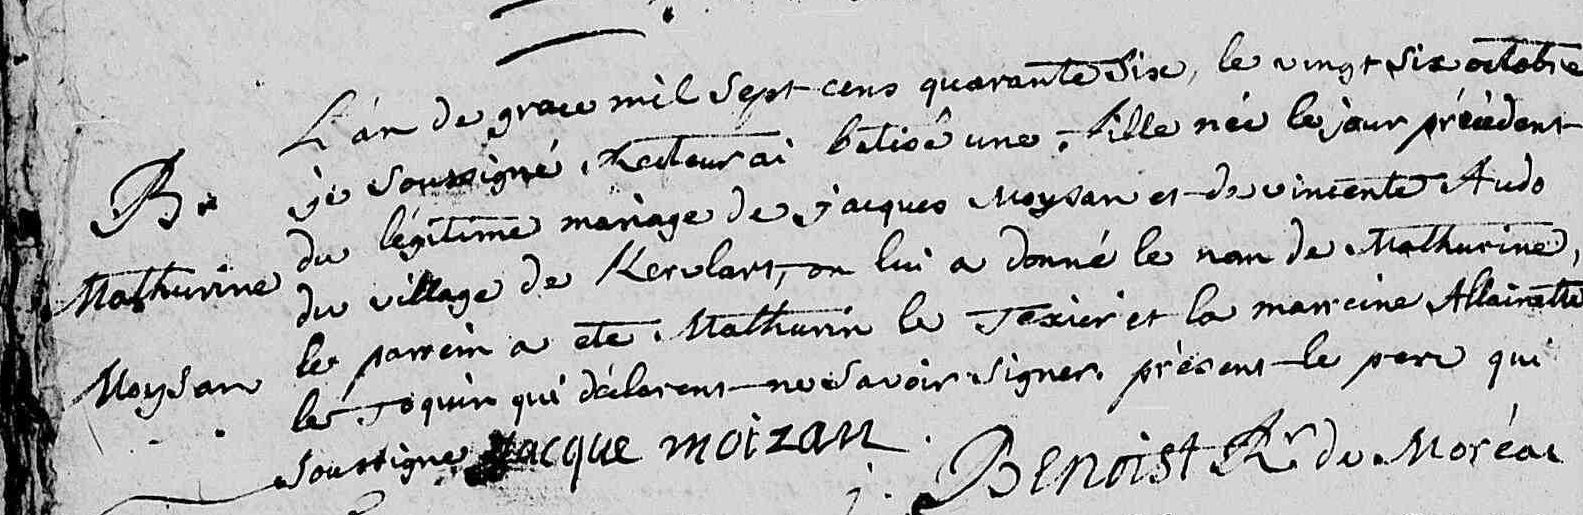 L'an de grace mil sept cens quarante Six, le vingt Six octobre
B. je soussigné, Recteur ai batisé une fille née le jour précédent
du légitime mariage de jacques Moysan et de vincente Audo
Mathurine du village de Kervlart, on lui a donné le nom de Mathurine,
le parrein a ete Mathurin le Texier et la marreine Allainette
Moysan le Joquin qui déclarent ne Savoir Signer. présent le pere qui
soussigne Jacque moizan
j. BENOist Rr de Moréac